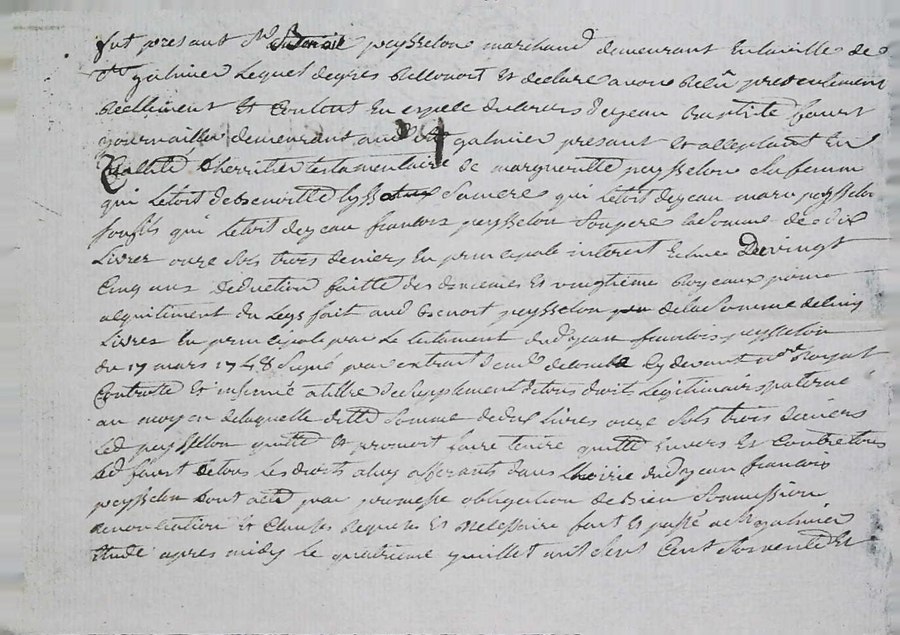 fut presant Sr Benoit peysselon marchand demeurant en la ville de
St galmier lequel de gres a reconnu et declare avoir reçu presentement
reellement et contant en espece de cours de jean baptiste faure
journaillier demeurant aud St galmier presant et acceptant en
qualité dherritier testamentaire de margueritte peysselon sa femme
qui letoit de benoitte sa mere qui letoit de jean marc peysselon
son fils qui letoit de jean francois peysselon son pere la somme de dix
livres onze sols trois deniers en principale interest echue de vingt
cinq ans deduction faitte des dixiemes et vingtieme royeaux pour
alquitement du legs fait aud benoit peysselon de la somme de cinq
livres en principale par le testament dud jean francois peysselon
du 17 mars 1748 signé par extrait cy devant nore royal
Controlle et insinué a tittre de supplement de tous droit legitimaire paterne
au moyen de laquelle ditte somme de dix livres onze sols trois deniers
led peysselon quitte et promet faire tenire quitte envers et contre tous
led faure de tous les droits a luy afferants dans lhoirie dud jean francois
peysselon dont acte par promesse obligation de bien soumission
renontiation et clauses requise et nessessaire fait et passé a St galmier
etude apres midy le quatrieme juillet mil sept cent soixente et